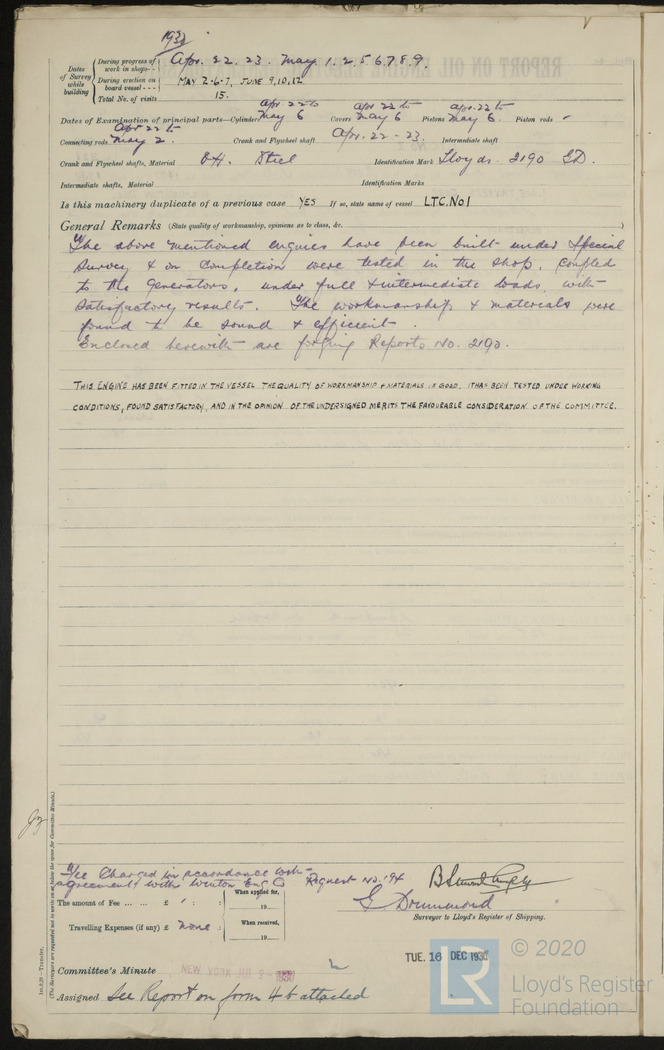 1930
Dates of Survey while building
During progress of work in shops - - Apr. 22. 23. May 1. 2. 5. 6. 7. 8. 9.
During erection on board vessel - - - MAY 2.6.7, JUNE 9,10,12
Total No. of visits 15.
Dates of Examination of principal parts—Cylinders Apr 22 to May 6 Covers Apr 22 to May 6 Pistons Apr. 22 to May 6. Piston rods -
Connecting rods Apr 22 to May 2. Crank and Flywheel shaft Apr. 22-23. Intermediate shaft
Crank and Flywheel shafts, Material O H. Steel Identification Mark Lloyds. 2190 G.D.
Intermediate shafts, Material Identification Marks
Is this machinery duplicate of a previous case YES If so, state name of vessel LTC. No 1
General Remarks (State quality of workmanship, opinions as to class, &c. )
The above mentioned engines have been built under Special
Survey & on completion were tested in the shop, coupled
to the generators, under full & intermediate loads, with
satisfactory results. The workmanship & materials were
found to be sound & efficient.
Enclosed herewith are forging Reports No. 2190.
THIS ENGINE HAS BEEN FITTED IN THE VESSEL THE QUALITY OF WORKMANSHIP & MATERIALS IS GOOD. IT HAS BEEN TESTED UNDER WORKING
CONDITIONS, FOUND SATISFACTORY, AND IN THE OPINION OF THE UNDERSIGNED MERITS THE FAVOURABLE CONSIDERATION OF THE COMMITTEE.
Fee Charged in accordance with
agreement with Winton Eng Co Request No. 194
The amount of Fee ... ... £ : : When applied for, 19
G Drummond
Surveyor to Lloyd's Register of Shipping.
Travelling Expenses (if any) £ none : When received, 19
TUE. 16 DEC 1930
Committee's Minute NEW YORK 1930
Assigned See Report on form 4b attached
1m.8.29.—Transfer.
(The Surveyors are requested not to write on or below the space for Committee Minute.)
LR
© 2020
Lloyd's Register
Foundation